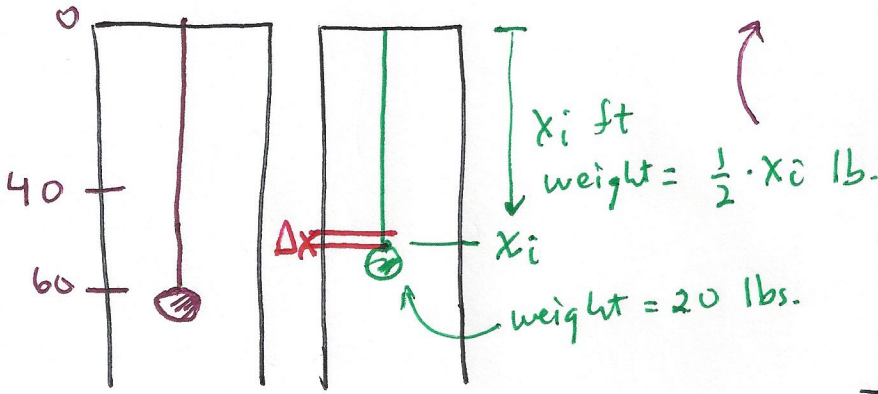 0
40
60
Δx
xi ft
weight = 1/2 · xi lb.
xi
weight = 20 lbs.